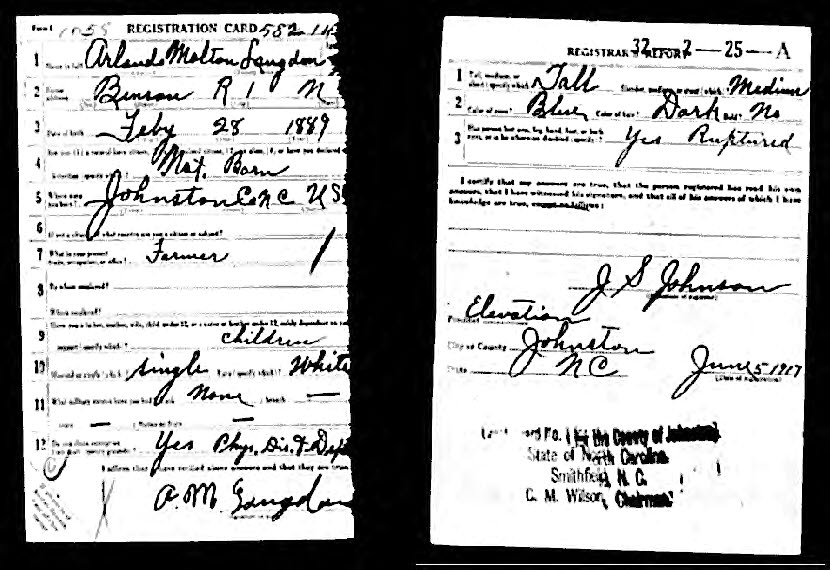 Form 1 1055 REGISTRATION CARD 582
1 Arlando Molton Langdon
Name in full
2 Benson R 1 N
Home address
3 Feby 28 1889
Date of birth
4 Nat. Born
5 Johnston Co NC US
Where were you born?
6
If not a citizen, of what country are you a citizen or subject?
7 Farmer
What is your present trade, occupation, or office?
8 By whom employed?
Where employed?
9 Have you a father, mother, wife, child under 12, or a sister or brother under 12, solely dependent on
children
support (specify which)?
10 Married or single (which)? Single Race (specify which)? White
11 What military service have you had? None branch
12 Do you claim exemption from draft (specify grounds)? Yes Phys. Dis. & Dep
I affirm that I have verified above answers and that they are true
A. M. Langdon
REGISTRAR'S REPORT 32 2-25-A
1 Tall, medium, or short (specify which)? Tall Slender, medium, or stout (which)? Medium
2 Color of eyes? Blue Color of hair? Dark Bald? No
3 Has person lost arm, leg, hand, foot, or both eyes, or is he otherwise disabled (specify)? Yes Ruptured
I certify that my answers are true, that the person registered has read his own
answers, that I have witnessed his signature, and that all of his answers of which I have
knowledge are true, except as follows:
J S Johnson
(Signature of registrar)
Precinct Elevation
City or County Johnston
State NC June 5 1917
(Date of registration)
for the County of Johnston
State of North Carolina
Smithfield, N. C.
C. M. Wilson, Chairman